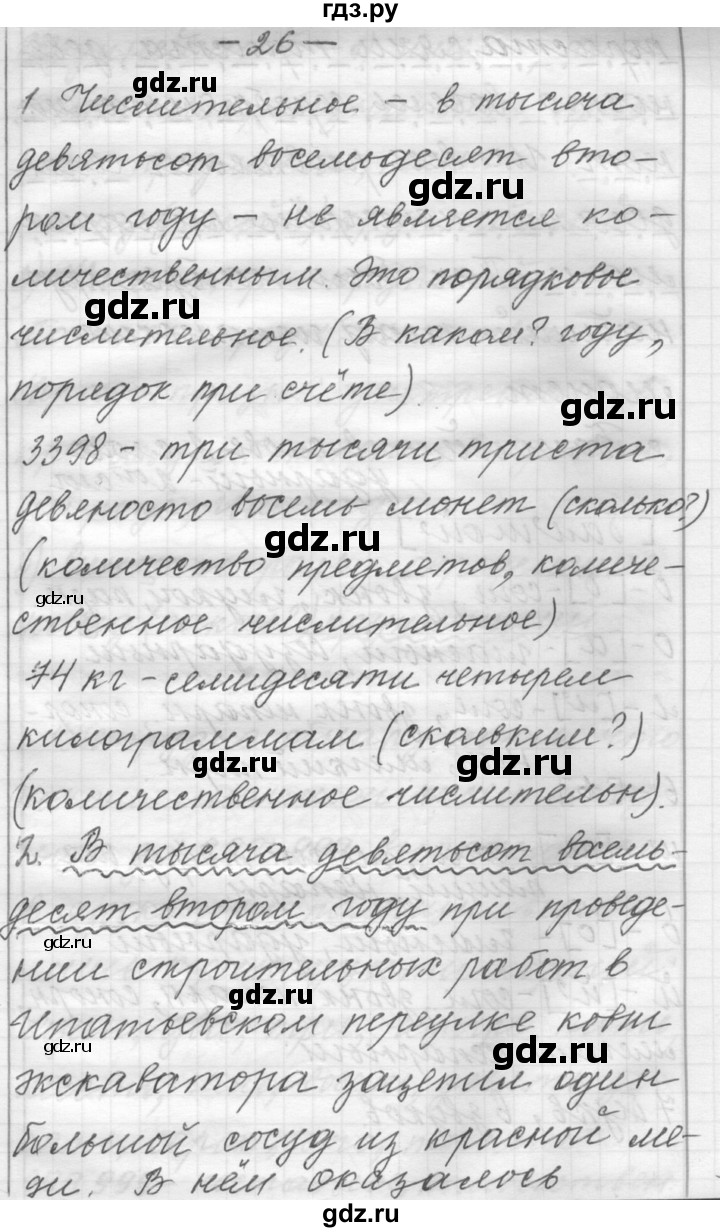 гдз.ру
- 26 -
gdz.ru
1 Числительное - в тысяча
девятьсот восемьдесят вто-
gdz.ru
ром году - не является ко-
личественным. Это порядковое
gdz.ru
числительное. (В каком? году,
порядок при счёте).
gdz.ru
3398 - три тысячи триста
девяносто восемь монет (сколько?)
gdz.ru
(количество предметов, количе-
gdz.ru
ственное числительное)
74 кг - семидесяти четырем
килограммам (скольким?)
gdz.ru
gdz.ru
(количественное числительн).
2. В тысяча девятьсот восемь-
десят втором году при проведе-
gdz.ru
нии строительных работ в
gdz.ru
Ипатьевском переулке ковш
gdz.ru
gdz.ru
экскаватора зацепил один
большой сосуд из красной ме-
ди. В нём оказалось
gdz.ru
gdz.ru